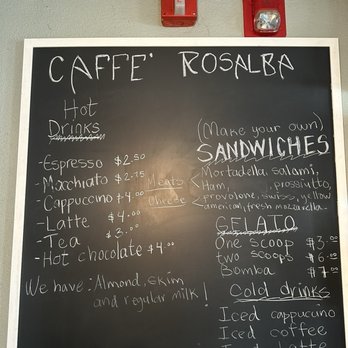 CAFFE' ROSALBA
Hot
Drinks
-Espresso $2.50
-Macchiato $2.75
-Cappuccino $4.00
-Latte $4.00
-Tea $3.00
-Hot chocolate $4.00
We have: Almond, skim
and regular milk!
(Make your own)
SANDWICHES
Meats
Mortadella, salami,
Ham, prossiutto,
Cheese
provolone, swiss, yellow
american, fresh mozzarella
GELATO
One scoop $3
two scoops $6
Bomba $7
Cold drinks
Iced cappucino
Iced coffee
Iced latte